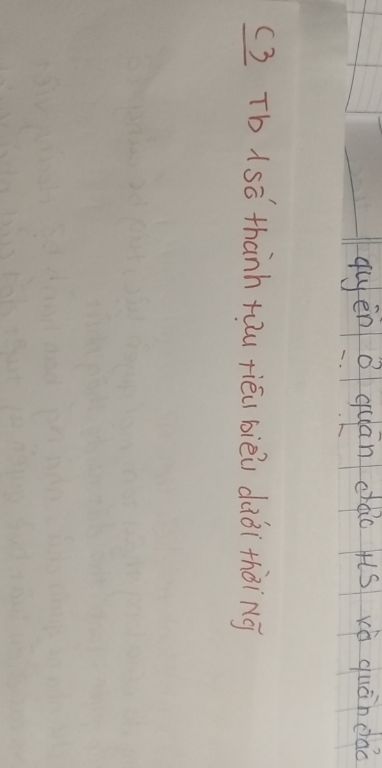 quyền ở quần đảo HS và quần đảo
C3 Tb 1 số thành tựu tiêu biểu dưới thời Ng̃